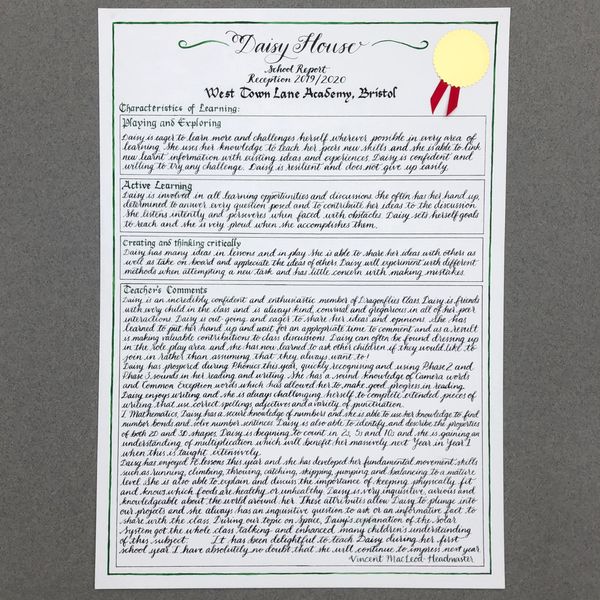 Daisy House
School Report
Reception 2019/2020
West Town Lane Academy, Bristol
Characteristics of Learning:
Playing and Exploring
Daisy is eager to learn more and challenges herself wherever possible in every area of
learning. She uses her knowledge to teach her peers new skills and she is able to link
new learnt information with existing ideas and experiences. Daisy is confident and
willing to try any challenge. Daisy is resilient and does not give up easily.
Active Learning
Daisy is involved in all learning opportunities and discussions. She often has her hand up,
determined to answer every question posed and to contribute her ideas to the discussion.
She listens intently and perseveres when faced with obstacles. Daisy sets herself goals
to reach and she is very proud when she accomplishes them.
Creating and thinking critically
Daisy has many ideas in lessons and in play. She is able to share her ideas with others as
well as take on board and appreciate the ideas of others. Daisy will experiment with different
methods when attempting a new task and has little concern with making mistakes.
Teacher's Comments
Daisy is an incredibly confident and enthusiastic member of Dragonflies Class. Daisy is friends
with every child in the class and is always kind, convivial and gregarious in all of her peer
interactions. Daisy is out going and eager to share her ideas and opinions. She has
learned to put her hand up and wait for an appropriate time to comment and as a result
is making valuable contributions to class discussions. Daisy can often be found dressing up
in the role play area and she has now learned to ask other children if they would like to
join in rather than assuming that they always want to!
Daisy has prospered during Phonics this year, quickly recognising and using Phase 2 and
Phase 3 sounds in her reading and writing. She has a sound knowledge of Camera words
and Common Exception words which has allowed her to make good progress in reading.
Daisy enjoys writing and she is always challenging herself to complete extended pieces of
writing that use correct spellings, adjectives and a variety of punctuation.
I Mathematics, Daisy has a secure knowledge of numbers and she is able to use her knowledge to find
number bonds and solve number sentences. Daisy is also able to identify and describe the properties
of both 2D and 3D shapes. Daisy is begining to count in 2s, 5s and 10s and she is gaining an
understanding of multiplication which will benefit her massively next Year in Year 1
when this is taught extensively.
Daisy has enjoyed PE lessons this year and she has developed her fundamental movement skills
such as running, climbing, throwing, catching, skipping, jumping and balancing to a mature
level. She is also able to explain and discuss the importance of keeping physically fit
and knows which foods are healthy or unhealthy. Daisy is very inquisitive, curious and
knowledgeable about the world around her. These attributes allow Daisy to plunge into
our projects and she always has an inquisitive question to ask or an informative fact to
share with the class. During our topic on Space, Daisy's explanation of the solar
system got the whole class talking and enhanced many children's understanding
of this subject. It has been delightful to teach Daisy during her first
school year. I have absolutely no doubt that she will continue to impress next year.
Vincent MacLeod Headmaster